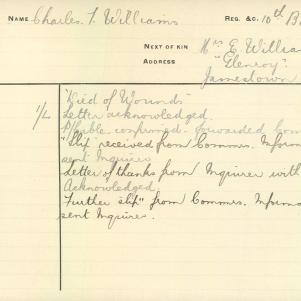 NAME Charles. F. Williams REG. &C. 10th B
NEXT OF KIN Mrs E. William
ADDRESS "Glenroy"
Jamestown
1/L "Died of Wounds"
Letter acknowledged.
confirmed - forwarded Com
"Slip" received from Commrs. Inform
sent Inquirers
Letter of thanks from Inquirer with
Acknowledged.
"Further slip" from Commrs. Informa
sent Inquirers.